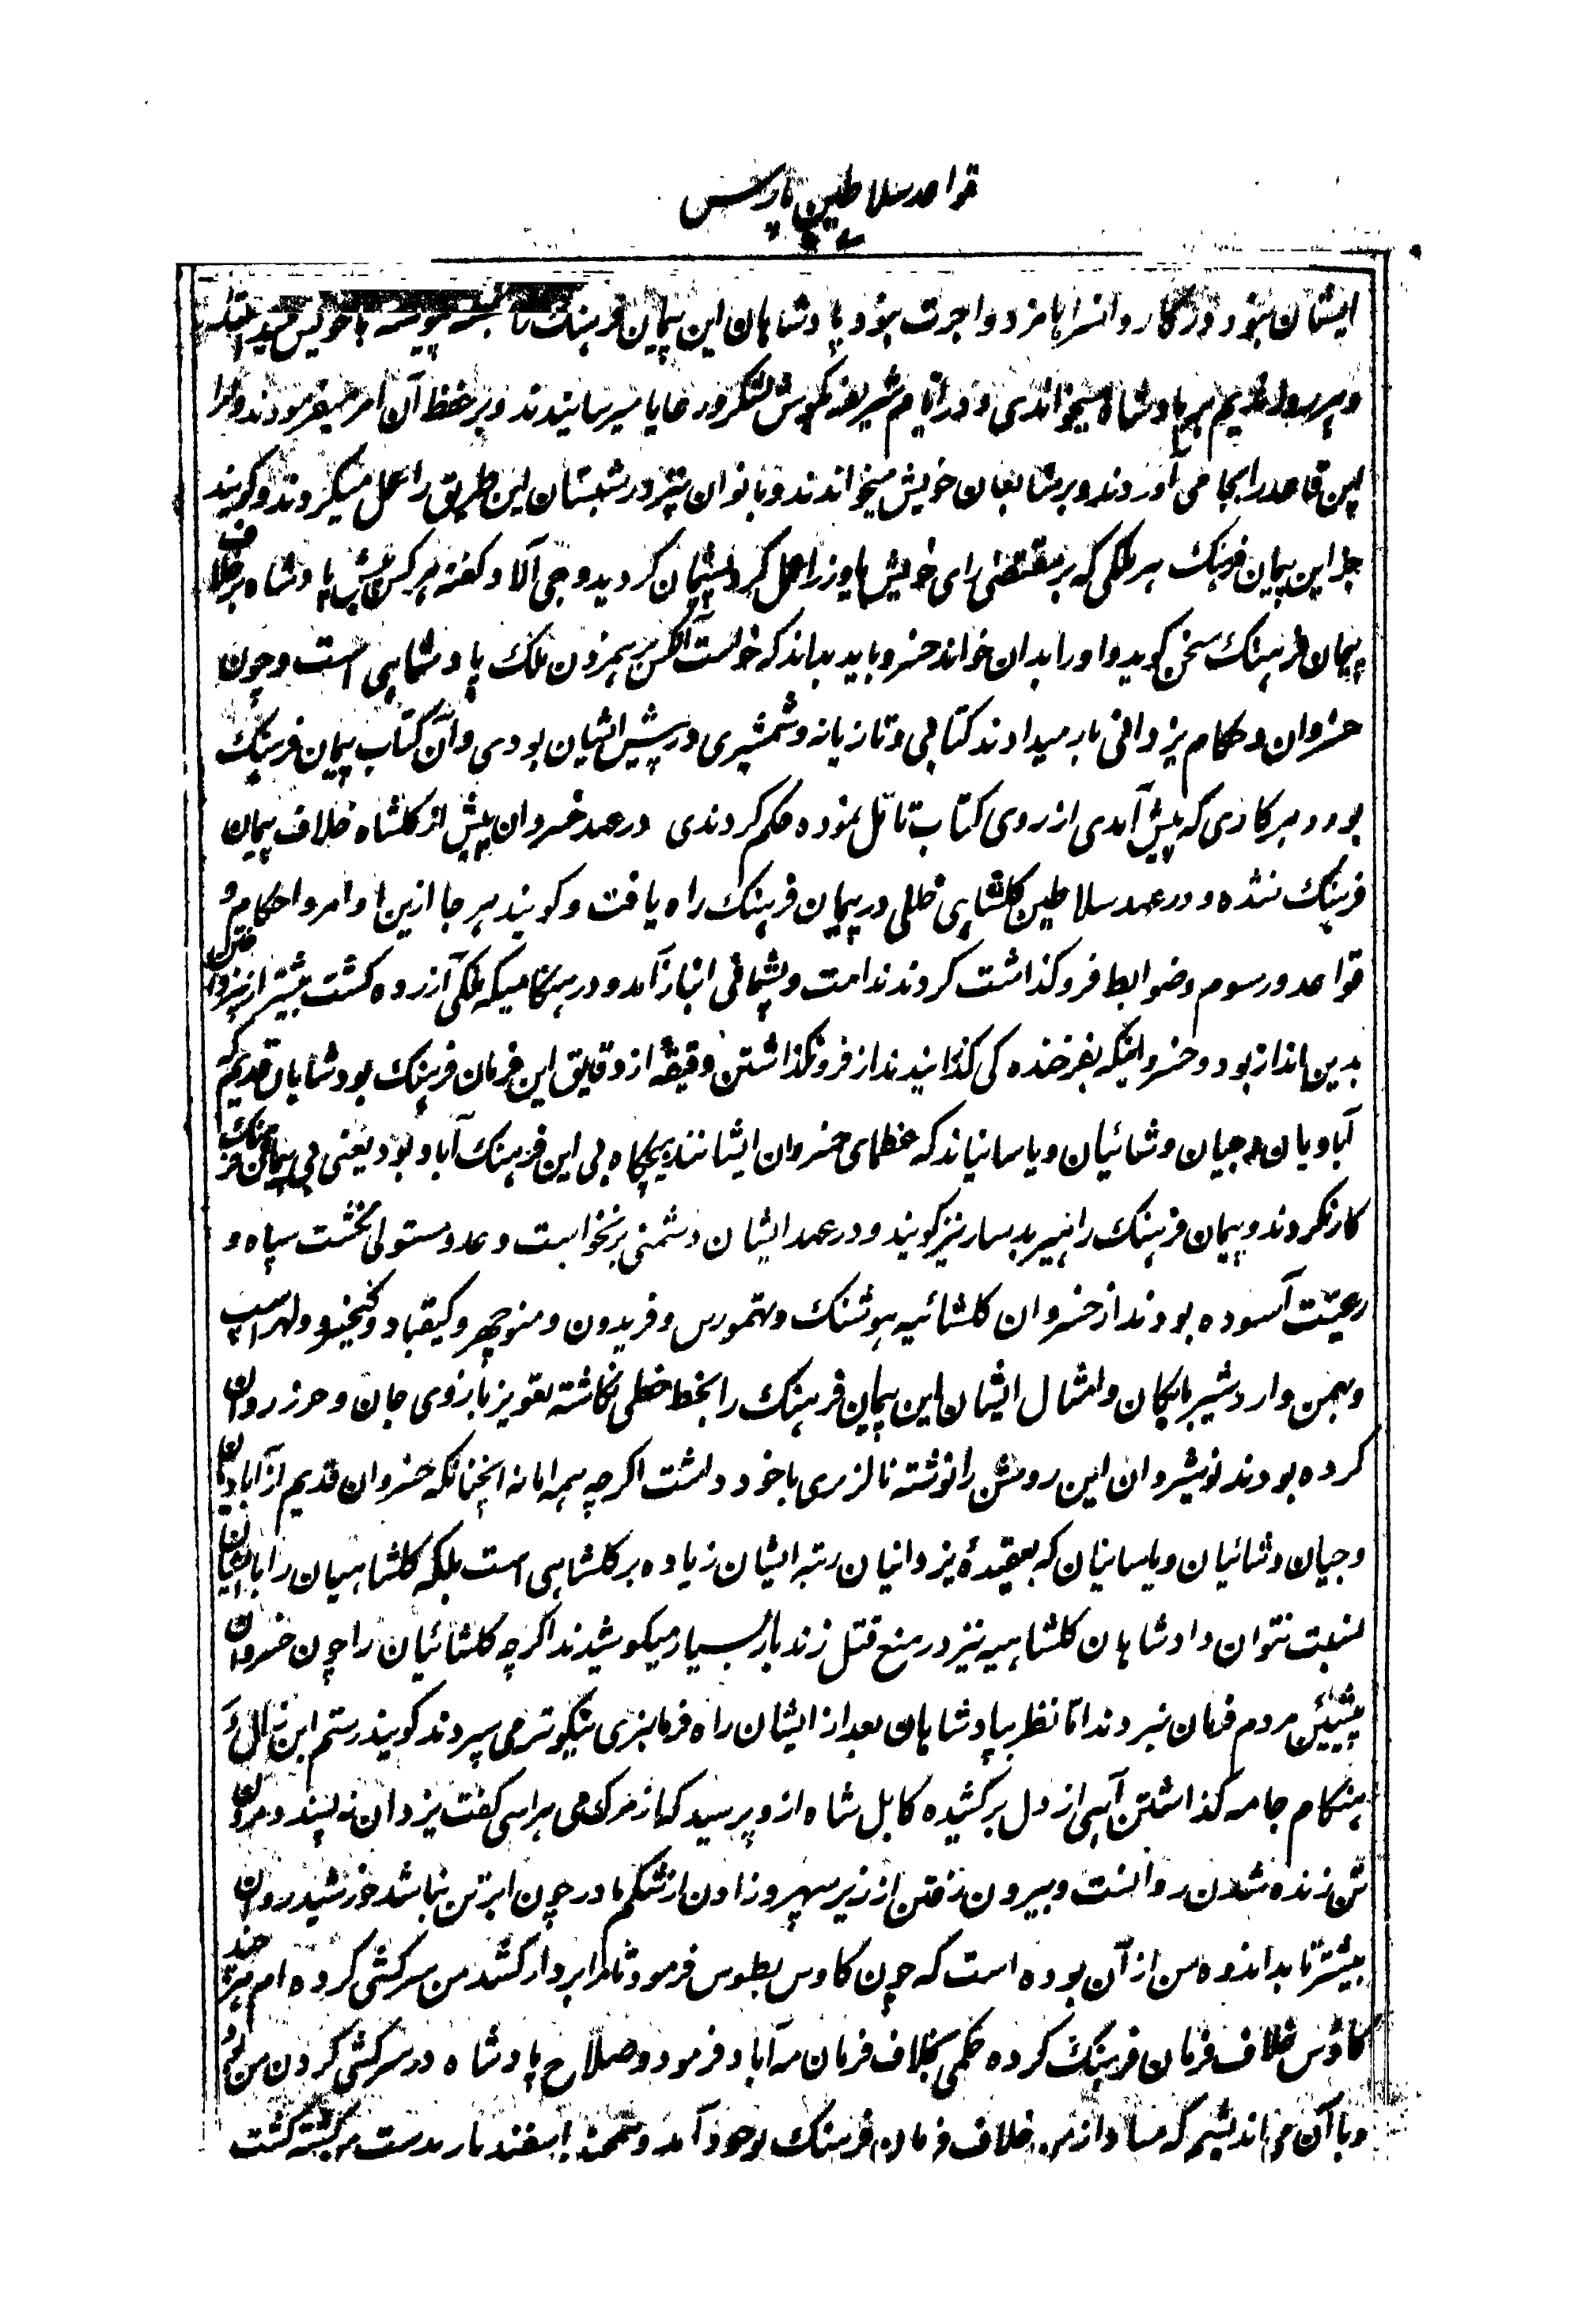 قواعد سلاطین پارس
ایشان نبود و در کاروانسراها مزد و اجرت نبود پادشاهان این پیمان فرهنک پیوسته با خویش
و هر روز ندیم بر پادشاه میخواندی و در ایام شریفه بکوش لشکر و رعایا میرسانیدند و بر حفظ آن امر میفرمودند و امرا
این قاعده را بجا می آوردند و بر متابعان خویش میخواندند و بانوان نیز در شبستان این طریق را عمل میکردند و کویند
جز این پیمان فرهنک هر ملکی که بر مقتضی رای خویش یا وزرا عمل کرد پشیمان کردید و جی آلاد کفته هر کس پیش پادشاه بر خلاف
پیمان فرهنک سخن کوید و او را بدان خواند خسرو باید بداند که خواست آنکس بر هم زدن ملک پادشاهی است و چون
خسروان و حکام یزدانی بار میدادند کتابی و تازیانه و شمشیری در پیش ایشان بودی و آن کتاب پیمان فرهنک
بود و هر کاری که پیش آمدی از روی کتاب تامل نموده حکم کردندی در عهد خسروان پیش از کلشاه خلاف پیمان
فرهنک نشده و در عهد سلاطین کلشاهی خللی در پیمان فرهنک راه یافت و کویند هر جا ازین اوامر و احکام و
قواعد و رسوم و ضوابط فرو کذاشت کردند ندامت و پشیمانی انباز آمد و در هنکامیکه ملکی آزرده کشت بیشتر از نیزد
بدین انداز بود و خسروانیکه بفرخنده کی کذرانیدند از فرو نکذاشتن دقیقه از دقایق این فرمان فرهنک بود شاهان قدیم که
آبادیان و جیان و شائیان و یاسانیاند که عظمای خسروان ایشانند هیچکاه بی این فرهنک آباد بود یعنی بی پیمان فرهنک
کار نکردند و پیمان فرهنک را هیربد سار نیز کویند و در عهد ایشان دشمنی برنخواست و عدو مستولی نکشت سپاه و
رعیت آسوده بودند از خسروان کلشائیه هوشنک و تهمورس و فریدون و منوچهر و کیقباد و کیخسرو و لهراسپ
و بهمن و اردشیر بابکان و امثال ایشان این پیمان فرهنک را بخط خطی نکاشته تعویز بازوی جان و حرز روان
کرده بودند نوشیروان این روش را نوشته با خود داشت اکرچه همه اما نه انچنانکه خسروان قدیم از آبادیان
و جیان و شائیان و یاسانیان که بعقیدهٔ یزدانیان رتبه ایشان زیاده بر کلشاهی است بلکه کلشاهیان را با ایشان
نسبت نتوان داد شاهان کلشاهیه نیز در منع قتل زند بار بسیار میکوشیدند اکرچه کلشائیان را چون خسروان
پیشین مردم فرمان نبردند اما نظر بپادشاهان بعد از ایشان راه فرمانبری نیکوتر می سپردند کویند رستم ابن زال
هنکام جامه کذاشتن آهی از دل برکشیده کابل شاه ازو پرسید که از مرک می هراسی کفت یزدان نه پسندد مردن
تن زنده شدن روانست و بیرون رفتن از زیر سپهر و زادن از شکم مادر چون ابر تن نباشد خورشید روان
بیشتر تابد اندوه من از آن بوده است که چون کاوس بطوس فرمود تا مرا بر دار کشد من سرکشی کرده ام هر چند
کاوس خلاف فرمان فرهنک کرده حکمی بخلاف فرمان مه آباد فرمود و صلاح پادشاه در سرکشی کردن من
و با آن می اندیشم که مبادا از من خلاف فرمان فرهنک بوجود آمد و همچنین اسفندیار بدست من کشته کشت